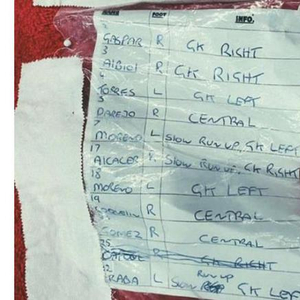 NAME FOOT INFO
GASPAR R GK RIGHT
3
AIBIOL R GK RIGHT
4
TORRES L GK LEFT
5
PAREJO R CENTRAL
7
MORENO L SLOW RUN UP, GK LEFT
17
ALCACER R SLOW RUN UP, GK RIGHT
18
MORENO L GK LEFT
19
R CENTRAL
GOMEZ R CENTRAL
25
R GK RIGHT
22
RABA L SLOW RUN UP GK LEFT